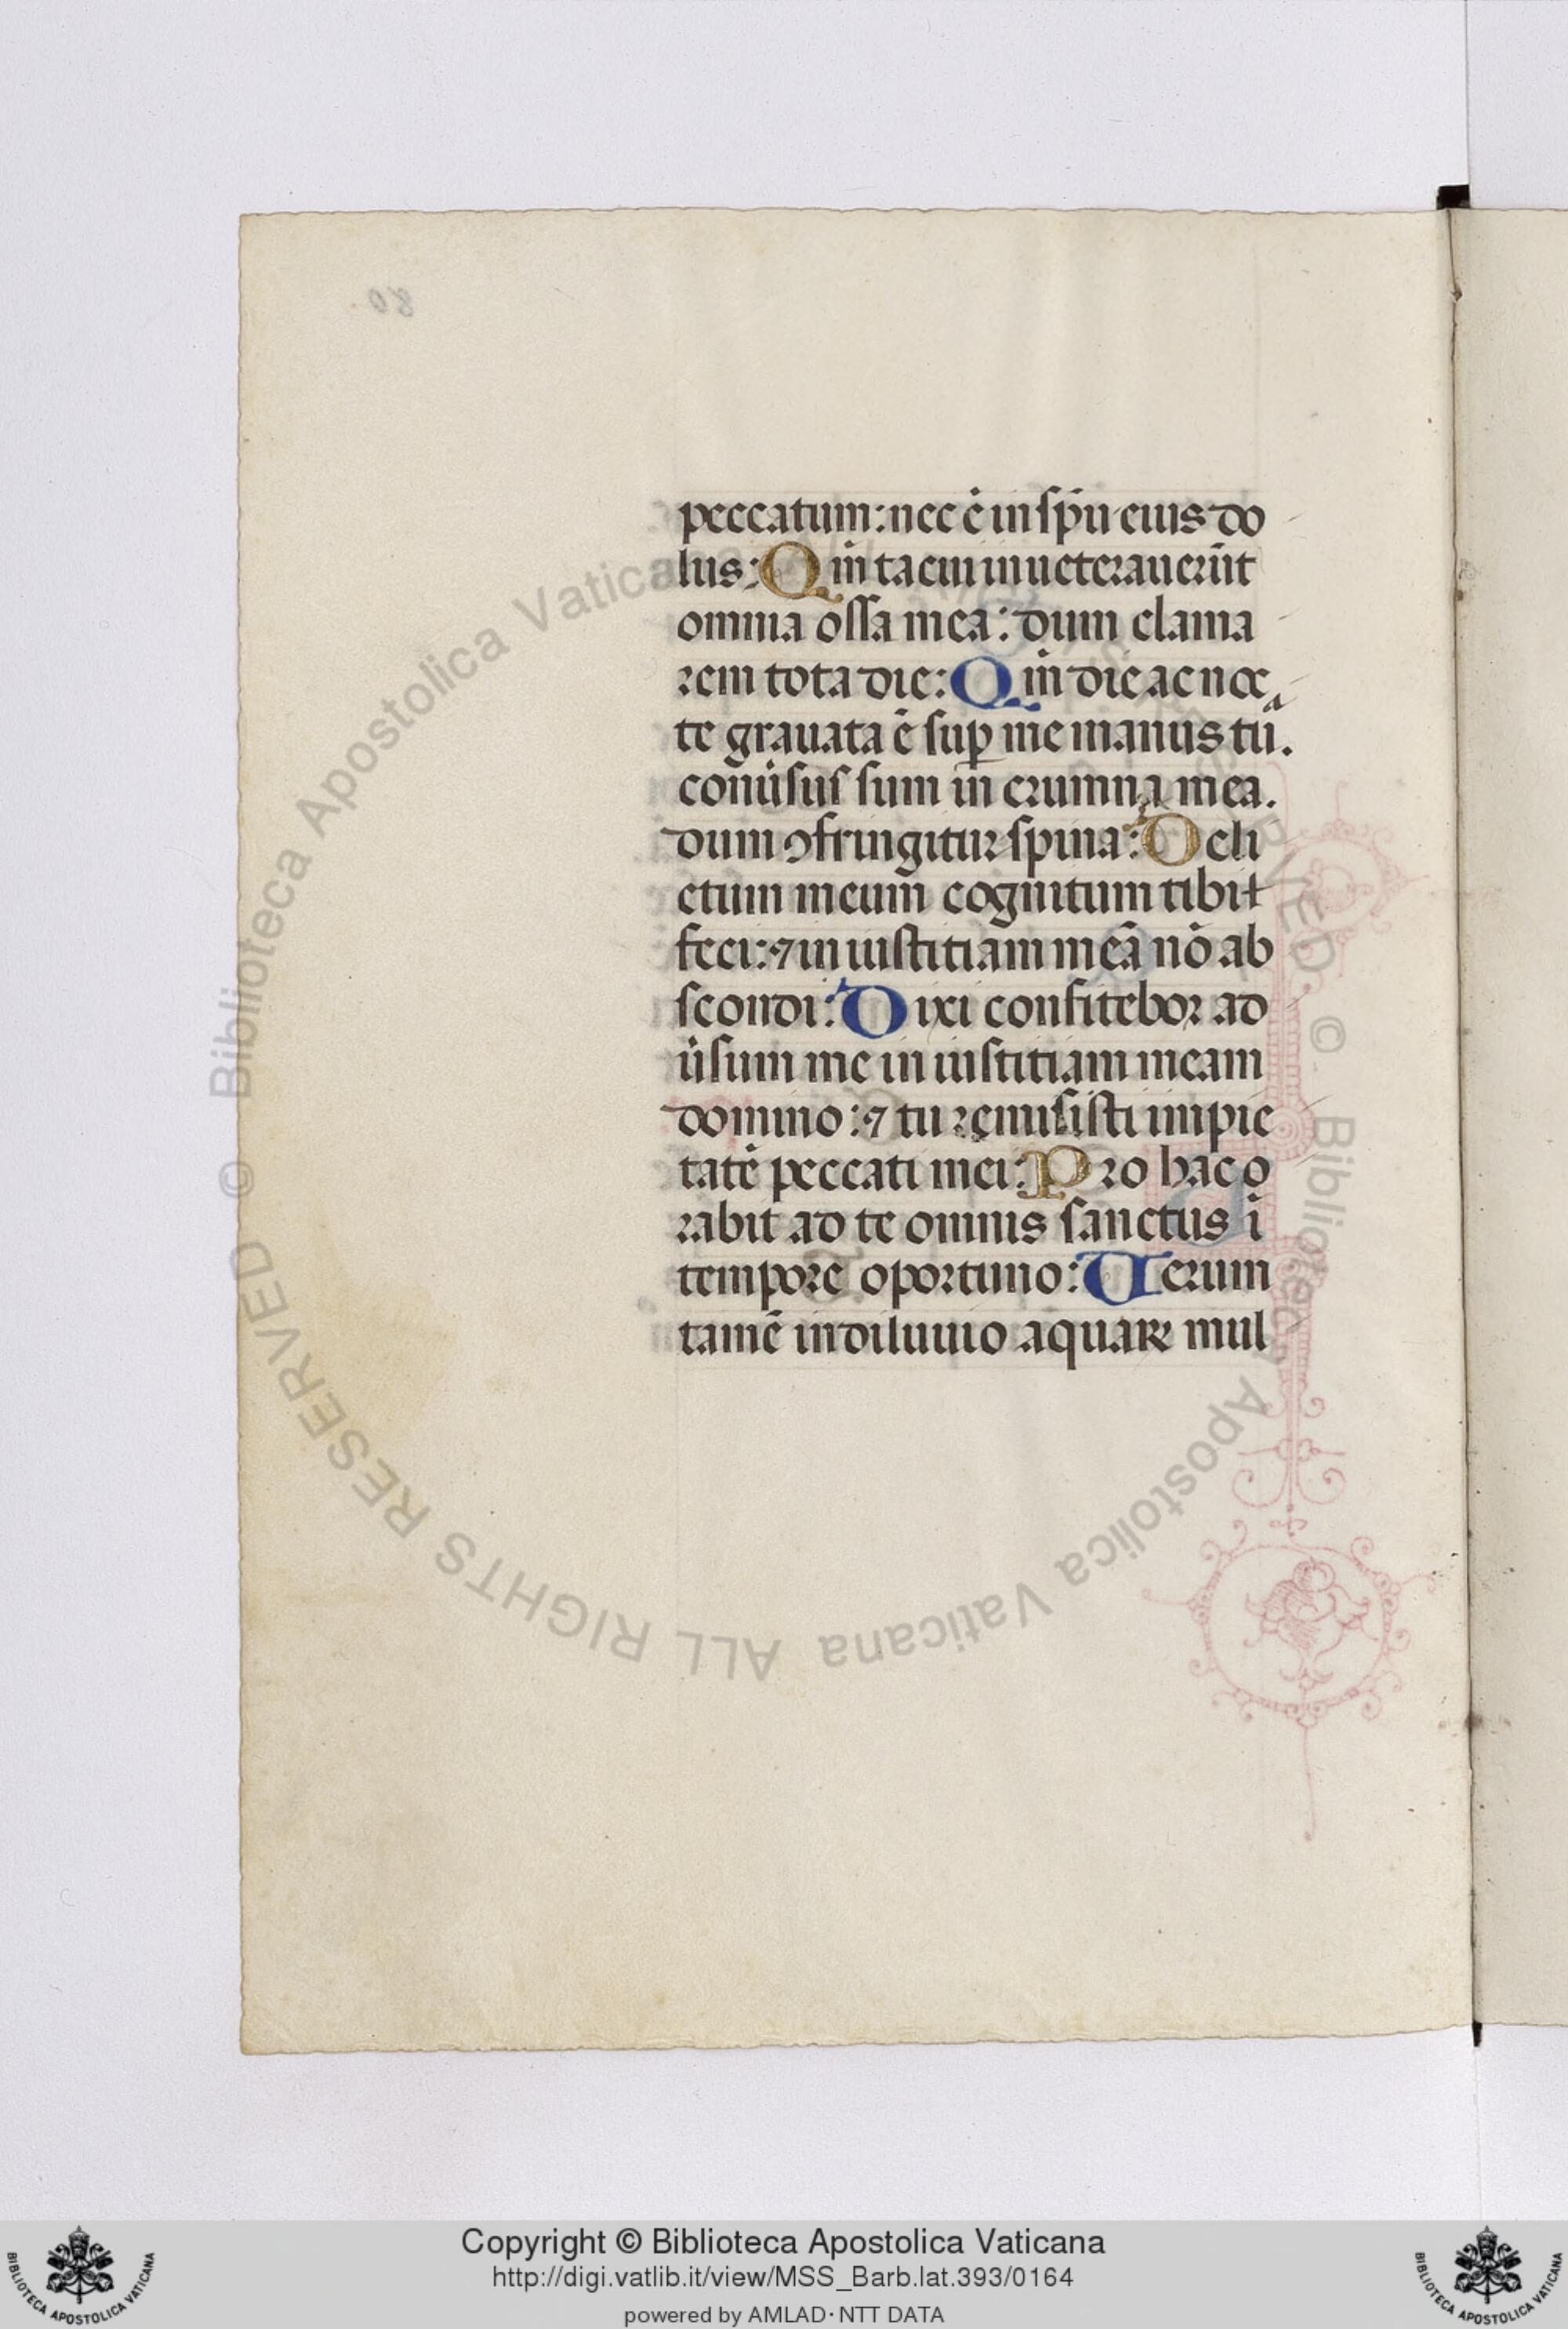 peccatum: nec ē in sp̄u eius do
lus: Qm̄ tacui inueterauerūt
omnia ossa mea: dum clama
rem tota die: Qm̄ die ac noc
te grauata ē sup me manus tua.
conūsus sum in erumna mea.
dum ꝯfringitur spina: Deli
ctum meum cognitum tibi
feci: ⁊ in iustitiam meā nō ab
scondi: Dixi confitebor ad
ūsum me in iustitiam meam
domino: ⁊ tu remisisti impie
tatē peccati mei: Pro hac o
rabit ad te omnis sanctus ī
tempore oportuno: Uerum
tamē in diluuio aquaꝝ mul
© Biblioteca Apostolica Vaticana ALL RIGHTS RESERVED
© Biblioteca Apostolica Vaticana ALL RIGHTS RESERVED
Copyright © Biblioteca Apostolica Vaticana
http://digi.vatlib.it/view/MSS_Barb.lat.393/0164
powered by AMLAD·NTT DATA
BIBLIOTECA APOSTOLICA VATICANA
BIBLIOTECA APOSTOLICA VATICANA